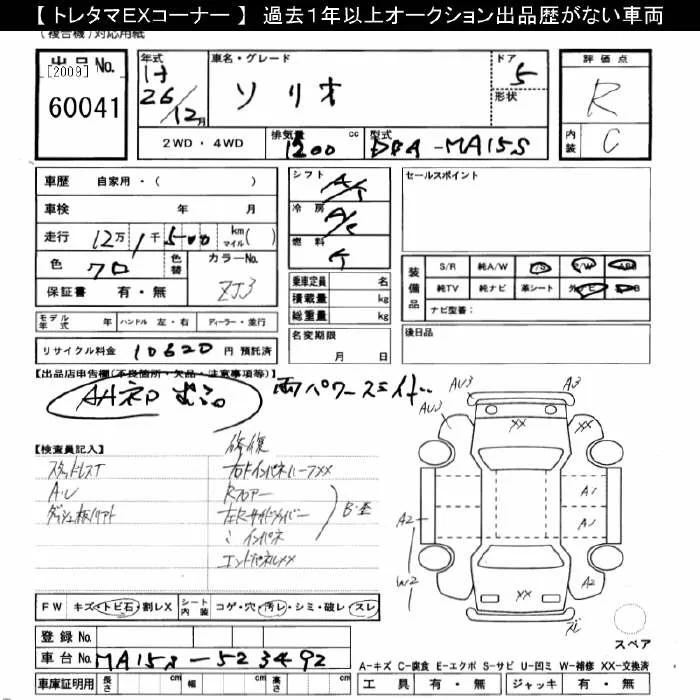 【 トレタマＥＸコーナー 】 過去１年以上オークション出品歴がない車両
(複合機)対応用紙
出品No.
[2009]
60041
年式
26/12月
車名・グレード
ソリオ
ドア
5
形状
評価点
R
内装
C
2WD ・ 4WD
排気量 1200 cc
型式
DBA-MA15S
車歴 自家用・( )
車検 年 月
走行 12万1千500 km マイル( )
色 クロ
色替
カラーNo.
ZJ3
保証書 有・無
シフト
A/T
冷房
A/C
燃料
乗車定員 名
積載量 kg
総重量 kg
セールスポイント
装備品
S/R 純A/W P/S P/W ABS
純TV 純ナビ 革シート 外ナビ
ナビ型番：
モデル年式 年 ハンドル 左・右 ディーラー・並行
名変期限
月 日
後日品
リサイクル料金 10620 円 預託済
【出品店申告欄(不良箇所・欠品・注意事項等)】
両パワースライド
AU3
A3
AU3
XX
【検査員記入】
修復
スタッドレスT
A・U
Rフロアー
インパネ
エンドパネルXX
A1
A2
A2
W2
XX
FW キズ・トビ石・割レX
シート内装 コゲ・穴・汚レ・シミ・破レ・スレ
スペア
登録No.
車台No. MA15S-523492
A-キズ C-腐食 E-エクボ S-サビ U-凹ミ W-補修 XX-交換済
車庫証明用 長さ cm 幅 cm 高さ cm
工具 有・無 ジャッキ 有・無